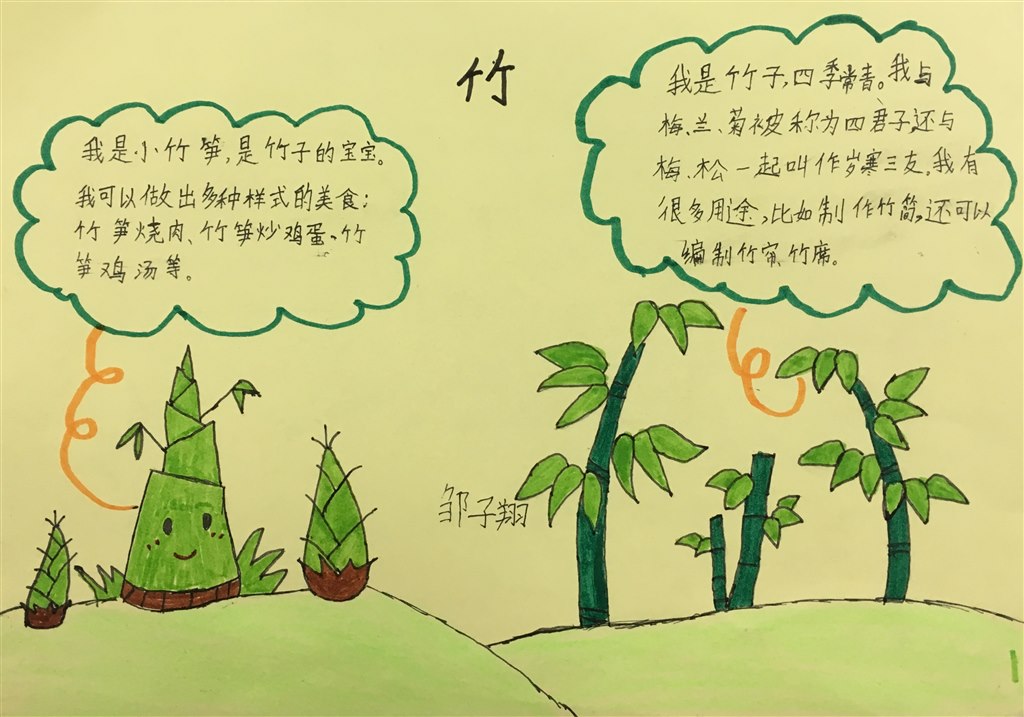 竹
我是小竹笋,是竹子的宝宝。
我可以做出多种样式的美食:
竹笋烧肉、竹笋炒鸡蛋、竹
笋鸡汤等。
我是竹子,四季常青。我与
梅、兰、菊被称为四君子,还与
梅、松一起叫作岁寒三友。我有
很多用途,比如制作竹简,还可以
编制竹帘、竹席。
邹子翔